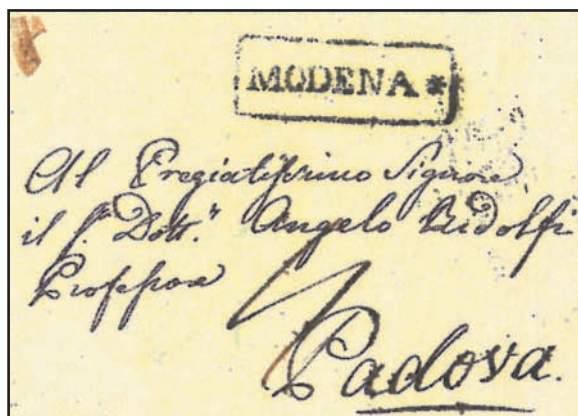 MODENA *
Al Pregiatissimo Signore
il S.r Dott.r Angelo Ridolfi
Professore
Padova.